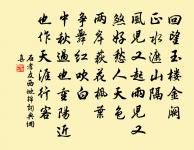 回望玉樓金闕
正水遮山隔
風兒又起雨兒又
煞好愁人天色
兩岸荻花楓葉
爭舞紅吹白
中秋過也重陽近
也作天涯行客
石孝友西地錦詞典網
集